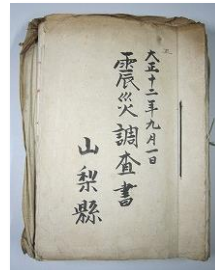 大正十二年九月一日
震災調査書
山梨縣